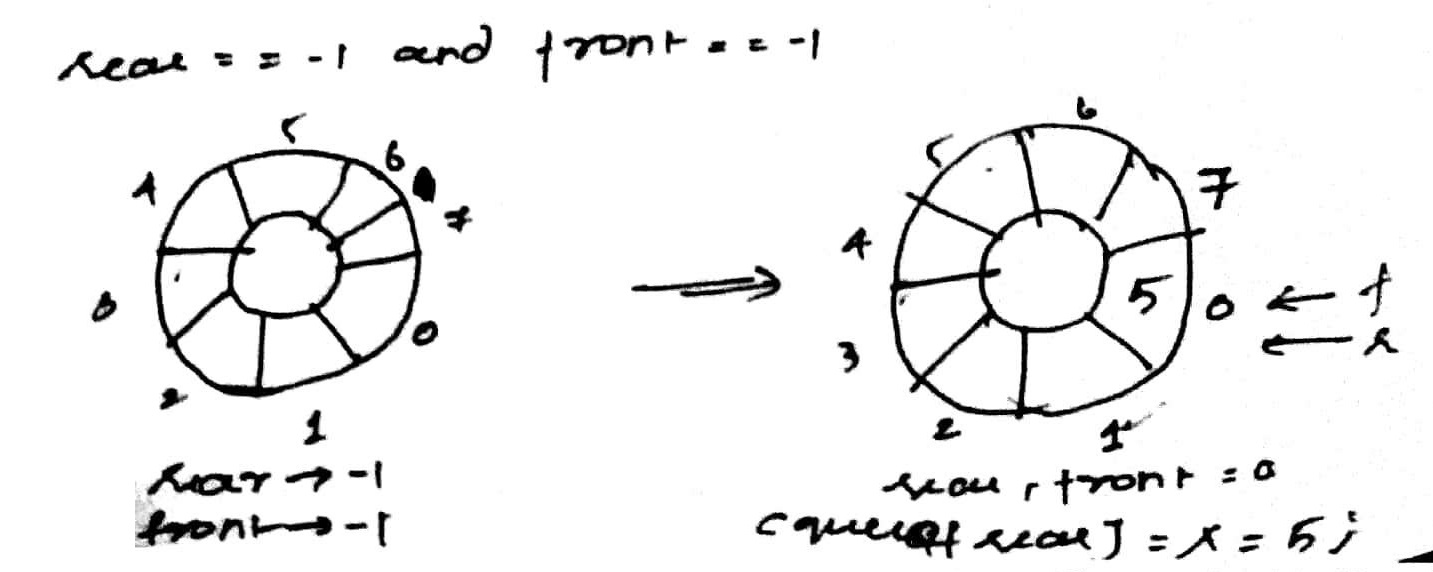 rear == -1 and front == -1
5
6
4
7
3
0
2
1
rear → -1
front → -1
6
5
7
4
5
0 ← f
← r
3
2
1
rear, front = 0
cqueue[rear] = x = 5;